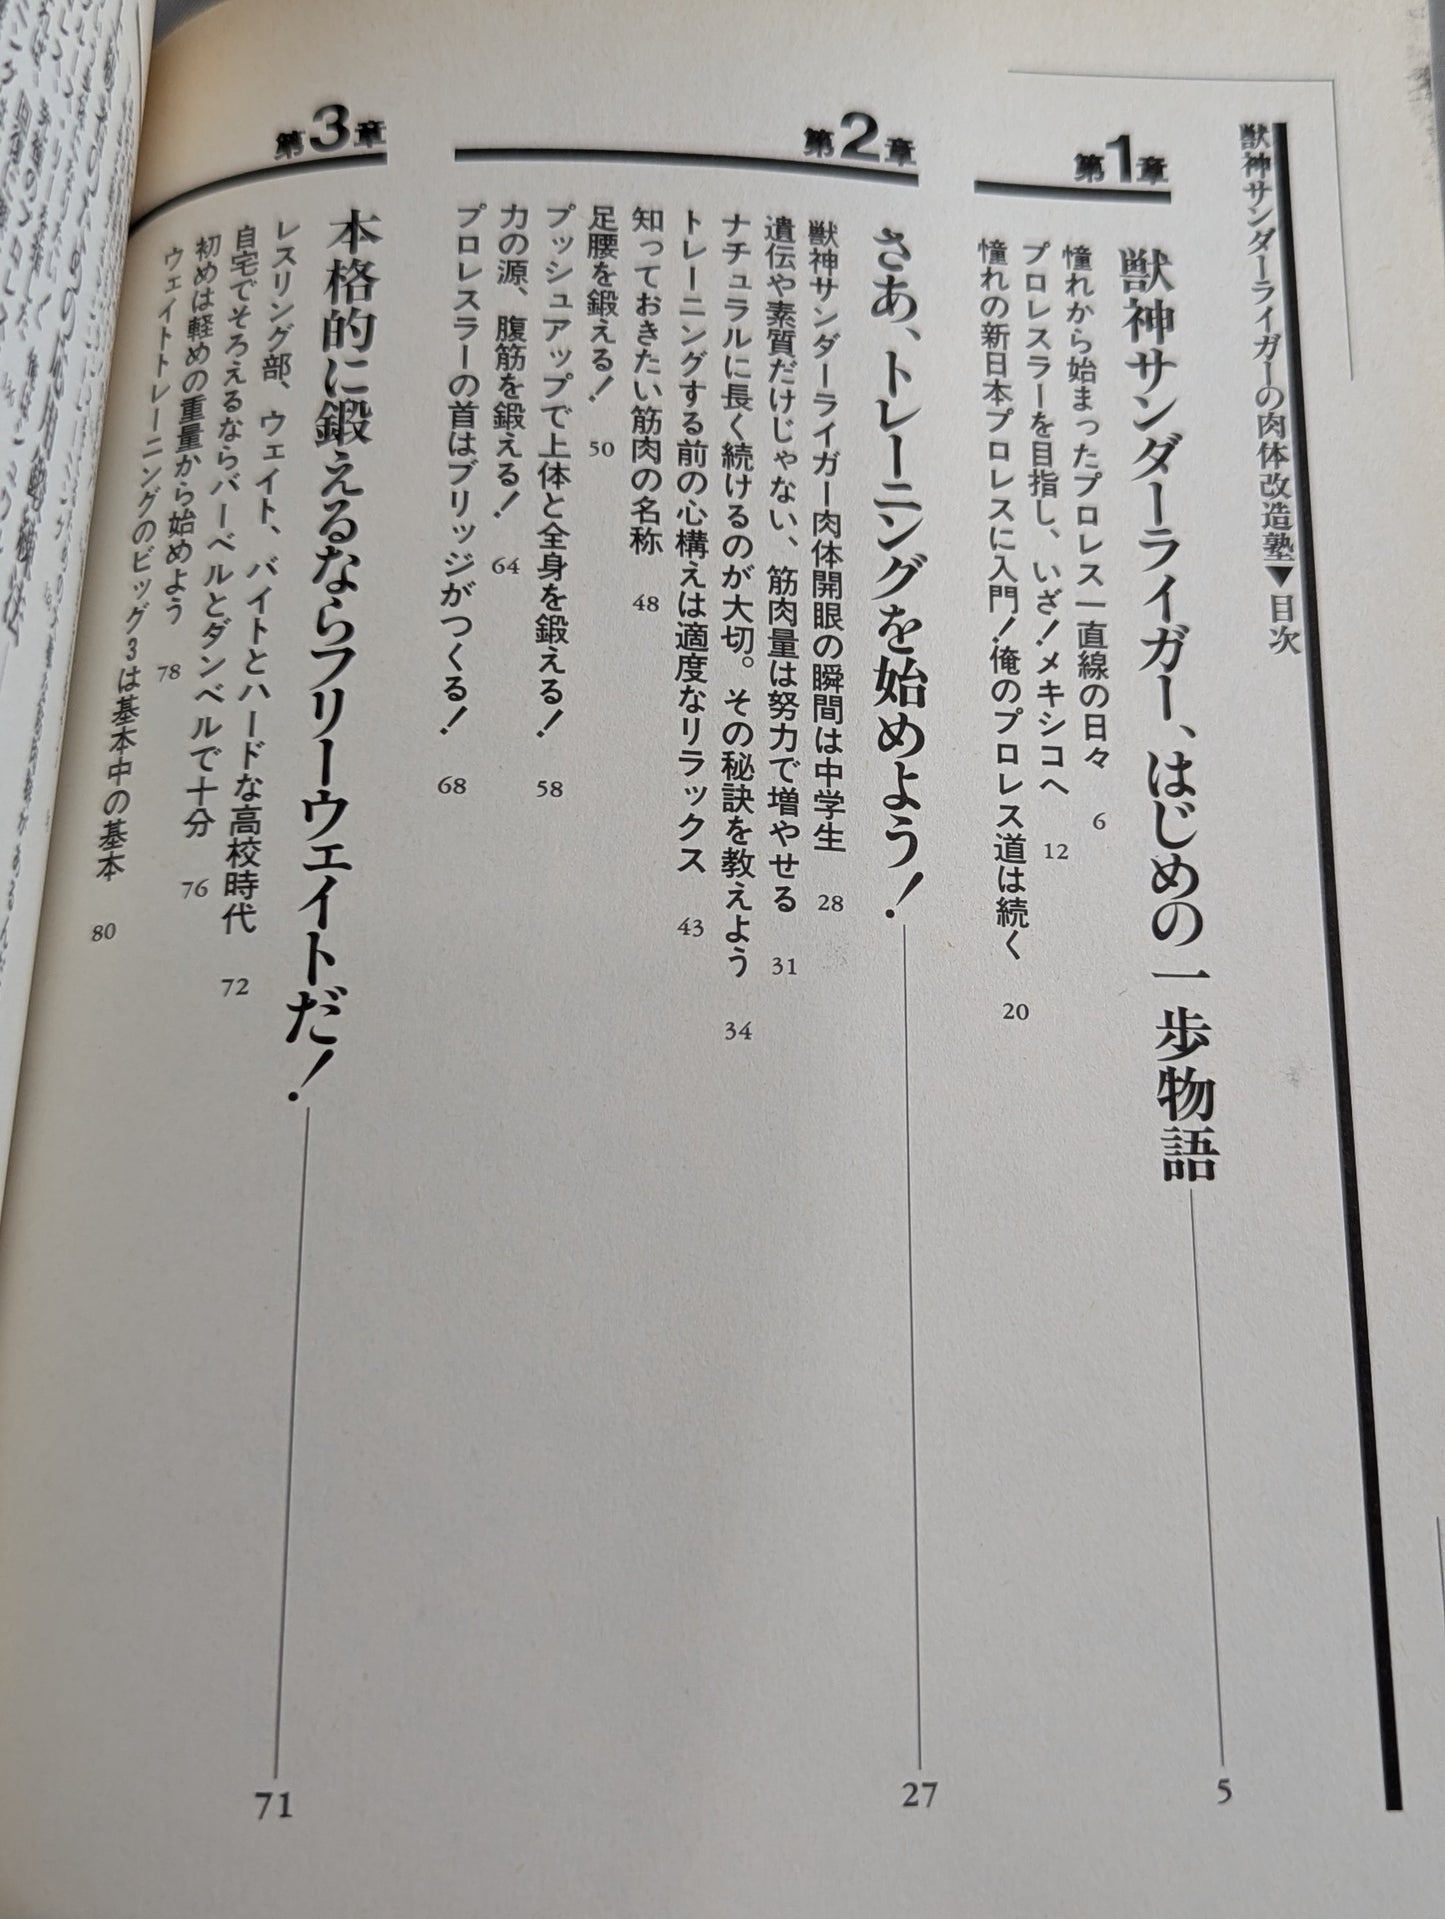 獣神サンダーライガーの肉体改造塾▼目次
第1章
獣神サンダーライガー、はじめの一歩物語 5
憧れから始まったプロレス一直線の日々 6
プロレスラーを目指し、いざ！メキシコへ 12
憧れの新日本プロレスに入門！俺のプロレス道は続く 20
第2章
さあ、トレーニングを始めよう！ 27
獣神サンダーライガー肉体開眼の瞬間は中学生 28
遺伝や素質だけじゃない、筋肉量は努力で増やせる 31
ナチュラルに長く続けるのが大切。その秘訣を教えよう 34
トレーニングする前の心構えは適度なリラックス 43
知っておきたい筋肉の名称 48
足腰を鍛える！ 50
プッシュアップで上体と全身を鍛える！ 58
力の源、腹筋を鍛える！ 64
プロレスラーの首はブリッジがつくる！ 68
第3章
本格的に鍛えるならフリーウェイトだ！ 71
レスリング部、ウェイト、バイトとハードな高校時代 72
自宅でそろえるならバーベルとダンベルで十分 76
初めは軽めの重量から始めよう 78
ウェイトトレーニングのビッグ3は基本中の基本 80